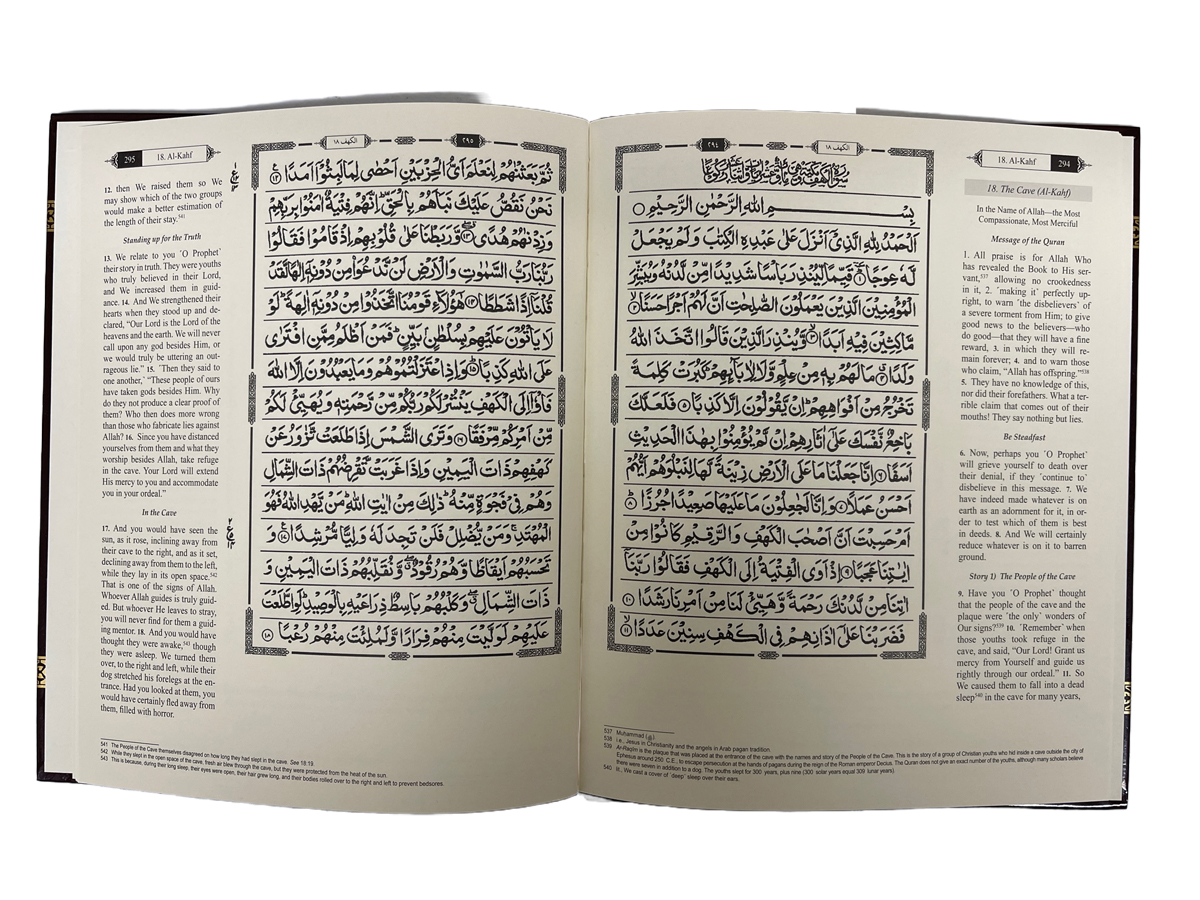 18. Al-Kahf 294
الكهف ١٨
٢٩٤
بِسْمِ اللهِ الرَّحْمٰنِ الرَّحِيْمِ
اَلْحَمْدُ لِلّٰهِ الَّذِيْٓ اَنْزَلَ عَلٰى عَبْدِهِ الْكِتٰبَ وَلَمْ يَجْعَلْ
لَّهٗ عِوَجًا ١ قَيِّمًا لِّيُنْذِرَ بَاْسًا شَدِيْدًا مِّنْ لَّدُنْهُ وَيُبَشِّرَ
الْمُؤْمِنِيْنَ الَّذِيْنَ يَعْمَلُوْنَ الصّٰلِحٰتِ اَنَّ لَهُمْ اَجْرًا حَسَنًا ٢
مَّاكِثِيْنَ فِيْهِ اَبَدًا ٣ وَّيُنْذِرَ الَّذِيْنَ قَالُوا اتَّخَذَ اللهُ
وَلَدًا ٤ مَا لَهُمْ بِهٖ مِنْ عِلْمٍ وَّلَا لِاٰبَآئِهِمْ كَبُرَتْ كَلِمَةً
تَخْرُجُ مِنْ اَفْوَاهِهِمْ اِنْ يَّقُوْلُوْنَ اِلَّا كَذِبًا ٥ فَلَعَلَّكَ
بَاخِعٌ نَّفْسَكَ عَلٰٓى اٰثَارِهِمْ اِنْ لَّمْ يُؤْمِنُوْا بِهٰذَا الْحَدِيْثِ
اَسَفًا ٦ اِنَّا جَعَلْنَا مَا عَلَى الْاَرْضِ زِيْنَةً لَّهَا لِنَبْلُوَهُمْ اَيُّهُمْ
اَحْسَنُ عَمَلًا ٧ وَاِنَّا لَجٰعِلُوْنَ مَا عَلَيْهَا صَعِيْدًا جُرُزًا ٨
اَمْ حَسِبْتَ اَنَّ اَصْحٰبَ الْكَهْفِ وَالرَّقِيْمِ كَانُوْا مِنْ
اٰيٰتِنَا عَجَبًا ٩ اِذْ اَوَى الْفِتْيَةُ اِلَى الْكَهْفِ فَقَالُوْا رَبَّنَآ
اٰتِنَا مِنْ لَّدُنْكَ رَحْمَةً وَّهَيِّئْ لَنَا مِنْ اَمْرِنَا رَشَدًا ١٠
فَضَرَبْنَا عَلٰٓى اٰذَانِهِمْ فِي الْكَهْفِ سِنِيْنَ عَدَدًا ١١
18. The Cave (Al-Kahf)
In the Name of Allah—the Most
Compassionate, Most Merciful
Message of the Quran
1. All praise is for Allah Who
has revealed the Book to His ser-
vant,537 allowing no crookedness
in it, 2. ˹making it˺ perfectly up-
right, to warn ˹the disbelievers˺ of
a severe torment from Him; to give
good news to the believers—who
do good—that they will have a fine
reward, 3. in which they will re-
main forever; 4. and to warn those
who claim, “Allah has offspring.”538
5. They have no knowledge of this,
nor did their forefathers. What a ter-
rible claim that comes out of their
mouths! They say nothing but lies.
Be Steadfast
6. Now, perhaps you ˹O Prophet˺
will grieve yourself to death over
their denial, if they ˹continue to˺
disbelieve in this message. 7. We
have indeed made whatever is on
earth as an adornment for it, in or-
der to test which of them is best
in deeds. 8. And We will certainly
reduce whatever is on it to barren
ground.
Story 1) The People of the Cave
9. Have you ˹O Prophet˺ thought
that the people of the cave and the
plaque were ˹the only˺ wonders of
Our signs?539 10. ˹Remember˺ when
those youths took refuge in the
cave, and said, “Our Lord! Grant us
mercy from Yourself and guide us
rightly through our ordeal.” 11. So
We caused them to fall into a dead
sleep540 in the cave for many years,
537 Muhammad (ﷺ).
538 i.e., Jesus in Christianity and the angels in Arab pagan tradition.
539 Ar-Raqîm is the plaque that was placed at the entrance of the cave with the names and story of the People of the Cave. This is the story of a group of Christian youths who hid inside a cave outside the city of
Ephesus around 250 C.E., to escape persecution at the hands of pagans during the reign of the Roman emperor Decius. The Quran does not give an exact number of the youths, although many scholars believe
there were seven in addition to a dog. The youths slept for 300 years, plus nine (300 solar years equal 309 lunar years).
540 lit., We cast a cover of ˹deep˺ sleep over their ears.
295 18. Al-Kahf
٢٩٥
الكهف ١٨
ثُمَّ بَعَثْنٰهُمْ لِنَعْلَمَ اَيُّ الْحِزْبَيْنِ اَحْصٰى لِمَا لَبِثُوْٓا اَمَدًا ١٢
نَحْنُ نَقُصُّ عَلَيْكَ نَبَاَهُمْ بِالْحَقِّ اِنَّهُمْ فِتْيَةٌ اٰمَنُوْا بِرَبِّهِمْ
وَزِدْنٰهُمْ هُدًى ١٣ وَّرَبَطْنَا عَلٰى قُلُوْبِهِمْ اِذْ قَامُوْا فَقَالُوْا
رَبُّنَا رَبُّ السَّمٰوٰتِ وَالْاَرْضِ لَنْ نَّدْعُوَا۟ مِنْ دُوْنِهٖٓ اِلٰهًا لَّقَدْ
قُلْنَآ اِذًا شَطَطًا ١٤ هٰٓؤُلَآءِ قَوْمُنَا اتَّخَذُوْا مِنْ دُوْنِهٖٓ اٰلِهَةً لَوْ
لَا يَاْتُوْنَ عَلَيْهِمْ بِسُلْطٰنٍ بَيِّنٍ فَمَنْ اَظْلَمُ مِمَّنِ افْتَرٰى
عَلَى اللهِ كَذِبًا ١٥ وَاِذِ اعْتَزَلْتُمُوْهُمْ وَمَا يَعْبُدُوْنَ اِلَّا اللهَ
فَاْوٗٓا اِلَى الْكَهْفِ يَنْشُرْ لَكُمْ رَبُّكُمْ مِّنْ رَّحْمَتِهٖ وَيُهَيِّئْ لَكُمْ
مِّنْ اَمْرِكُمْ مِّرْفَقًا ١٦ وَتَرَى الشَّمْسَ اِذَا طَلَعَتْ تَّزٰوَرُ عَنْ
كَهْفِهِمْ ذَاتَ الْيَمِيْنِ وَاِذَا غَرَبَتْ تَّقْرِضُهُمْ ذَاتَ الشِّمَالِ
وَهُمْ فِيْ فَجْوَةٍ مِّنْهُ ذٰلِكَ مِنْ اٰيٰتِ اللهِ مَنْ يَّهْدِ اللهُ فَهُوَ
الْمُهْتَدِ وَمَنْ يُّضْلِلْ فَلَنْ تَجِدَ لَهٗ وَلِيًّا مُّرْشِدًا ١٧ وَ
تَحْسَبُهُمْ اَيْقَاظًا وَّهُمْ رُقُوْدٌ وَّنُقَلِّبُهُمْ ذَاتَ الْيَمِيْنِ وَ
ذَاتَ الشِّمَالِ وَكَلْبُهُمْ بَاسِطٌ ذِرَاعَيْهِ بِالْوَصِيْدِ لَوِ اطَّلَعْتَ
عَلَيْهِمْ لَوَلَّيْتَ مِنْهُمْ فِرَارًا وَّلَمُلِئْتَ مِنْهُمْ رُعْبًا ١٨
12. then We raised them so We
may show which of the two groups
would make a better estimation of
the length of their stay.541
Standing up for the Truth
13. We relate to you ˹O Prophet˺
their story in truth. They were youths
who truly believed in their Lord,
and We increased them in guid-
ance. 14. And We strengthened their
hearts when they stood up and de-
clared, “Our Lord is the Lord of the
heavens and the earth. We will never
call upon any god besides Him, or
we would truly be uttering an out-
rageous lie.” 15. ˹Then they said to
one another,˺ “These people of ours
have taken gods besides Him. Why
do they not produce a clear proof of
them? Who then does more wrong
than those who fabricate lies against
Allah? 16. Since you have distanced
yourselves from them and what they
worship besides Allah, take refuge
in the cave. Your Lord will extend
His mercy to you and accommodate
you in your ordeal.”
In the Cave
17. And you would have seen the
sun, as it rose, inclining away from
their cave to the right, and as it set,
declining away from them to the left,
while they lay in its open space.542
That is one of the signs of Allah.
Whoever Allah guides is truly guid-
ed. But whoever He leaves to stray,
you will never find for them a guid-
ing mentor. 18. And you would have
thought they were awake,543 though
they were asleep. We turned them
over, to the right and left, while their
dog stretched his forelegs at the en-
trance. Had you looked at them, you
would have certainly fled away from
them, filled with horror.
541 The People of the Cave themselves disagreed on how long they had slept in the cave. See 18:19.
542 While they slept in the open space of the cave, fresh air blew through the cave, but they were protected from the heat of the sun.
543 This is because, during their long sleep, their eyes were open, their hair grew long, and their bodies rolled over to the right and left to prevent bedsores.